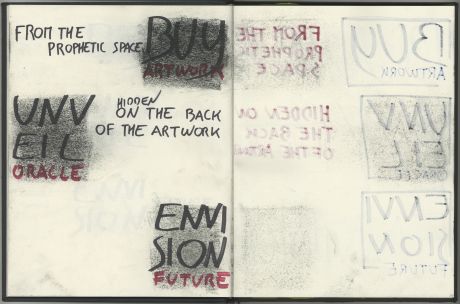 FROM THE
PROPHETIC SPACE,
BUY
ARTWORK
UNV
EIL
ORACLE
HIDDEN
ON THE BACK
OF THE ARTWORK
ENVI
SION
FUTURE
FROM THE
PROPHETIC
SPACE
BUY
ARTWORK
HIDDEN ON
THE BACK
OF THE
UNV
EIL
ORACLE
ENVI
SION
FUTURE